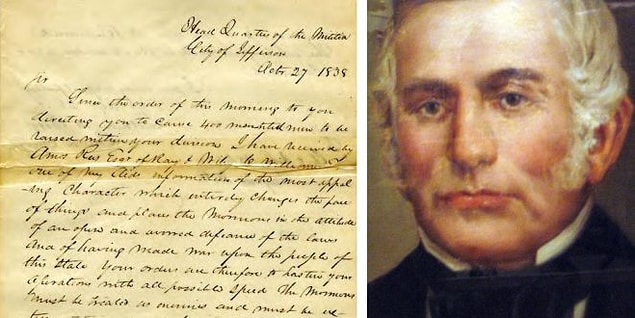 Head Quarters of the Militia
City of Jefferson
Octr 27 1838
Sir
Since the order of the morning to you
directing you to cause 400 mounted men to be
raised within your division I have received by
Amos Rees Esqr of Ray & Wiley C Williams Esqr
one of my aids information of the most appal
ling character which entirely changes the face
of things and places the Mormons in the attitude
of an open and avowed defiance of the laws
and of having made war upon the people of
this State Your orders are therefore to hasten your
operations with all possible speed The Mormons
must be treated as enemies and must be ex